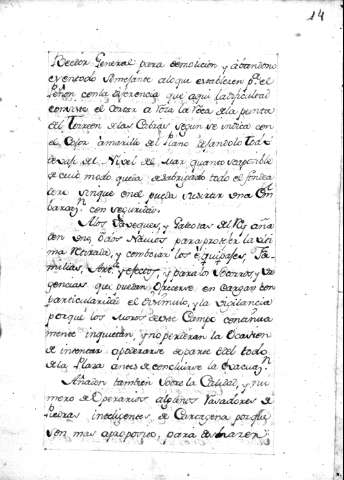 14
Rector General para demolicion, y abandono
en todo semejante a lo que establecen pr. el
Peñon con la diferencia que aqui la dificultad
consiste el cerrar a Yota la Voca de la punta
del Torreon de las Cabras segun se indica con
el Color amarillo del Plano dejandolo todo
de suf. del Nivel del Mar quanto sea posible
de cuio modo queda desabrigado todo el fondea
dero sin que en el pueda subsistir una Em
barcazn. con seguridad.
A los Javeques, y Galeotas del Rey aña
den dos Navios para protexer la ulti
ma Retirada, y comboiar los equipajes, Fa
milias, Arta. y efectos; y para los Socorros, y ur
gencias que puedan ofrecerse encargan con
particularidad el disimulo, y la vigilancia
porque los Moros de este Campo continua
mente inquietan, y no perderan la Ocasion
de intentar apoderarse de parte del todo
de la Plaza antes de concluirse la evacuazn.
Añaden tambien sobre la Calidad, y nu
mero de Operarios algunos Pasadores de
Piedras inteligentes de Cartagena porque
son mas aproposito, para deshazer